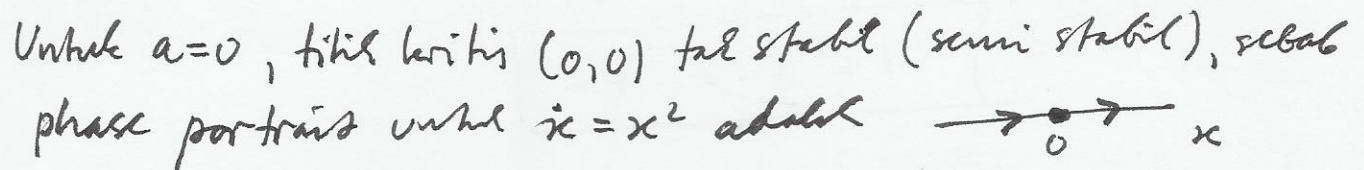 Untuk a=0, titik kritis (0,0) tak stabil (semi stabil), sebab
phase portrait untuk ẋ = x² adalah
0 x